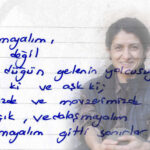 mayalım,
değil
düğün gelenin yolcusu
ki ve aşk ki;
zde ve mavzerimizde
şık, vedalaşmayalım
mayalım gitti sanırlar